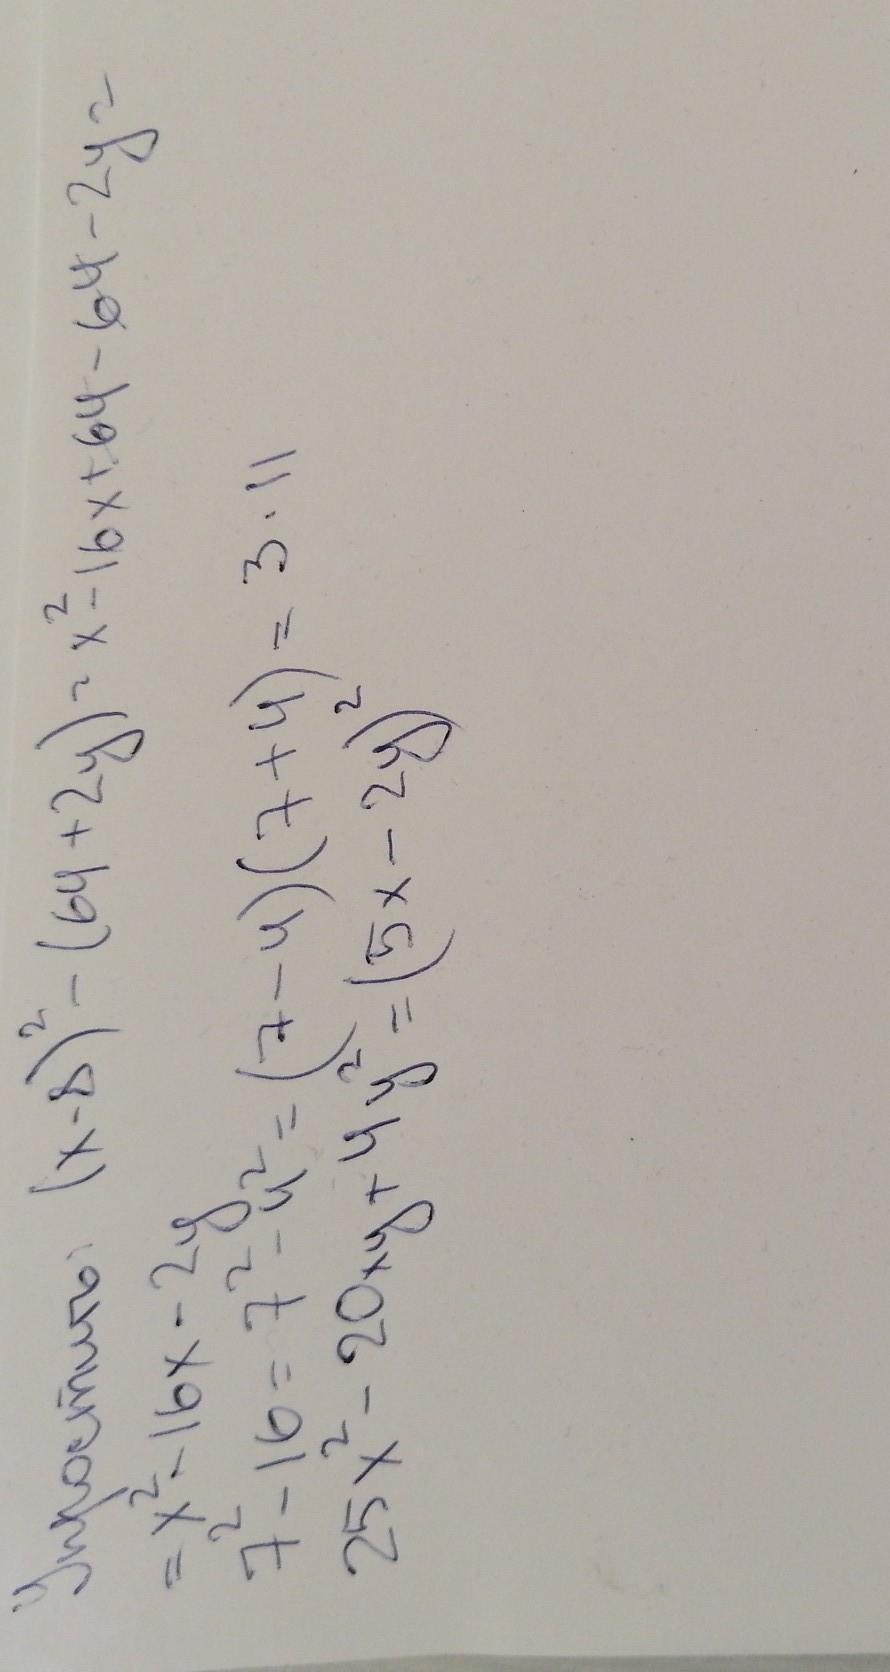 Упростить: (x-8)² - (64+2y) = x² - 16x + 64 - 64 - 2y =
= x² - 16x - 2y
7² - 16 = 7² - 4² = (7-4)(7+4) = 3·11
25x² - 20xy + 4y² = (5x - 2y)²